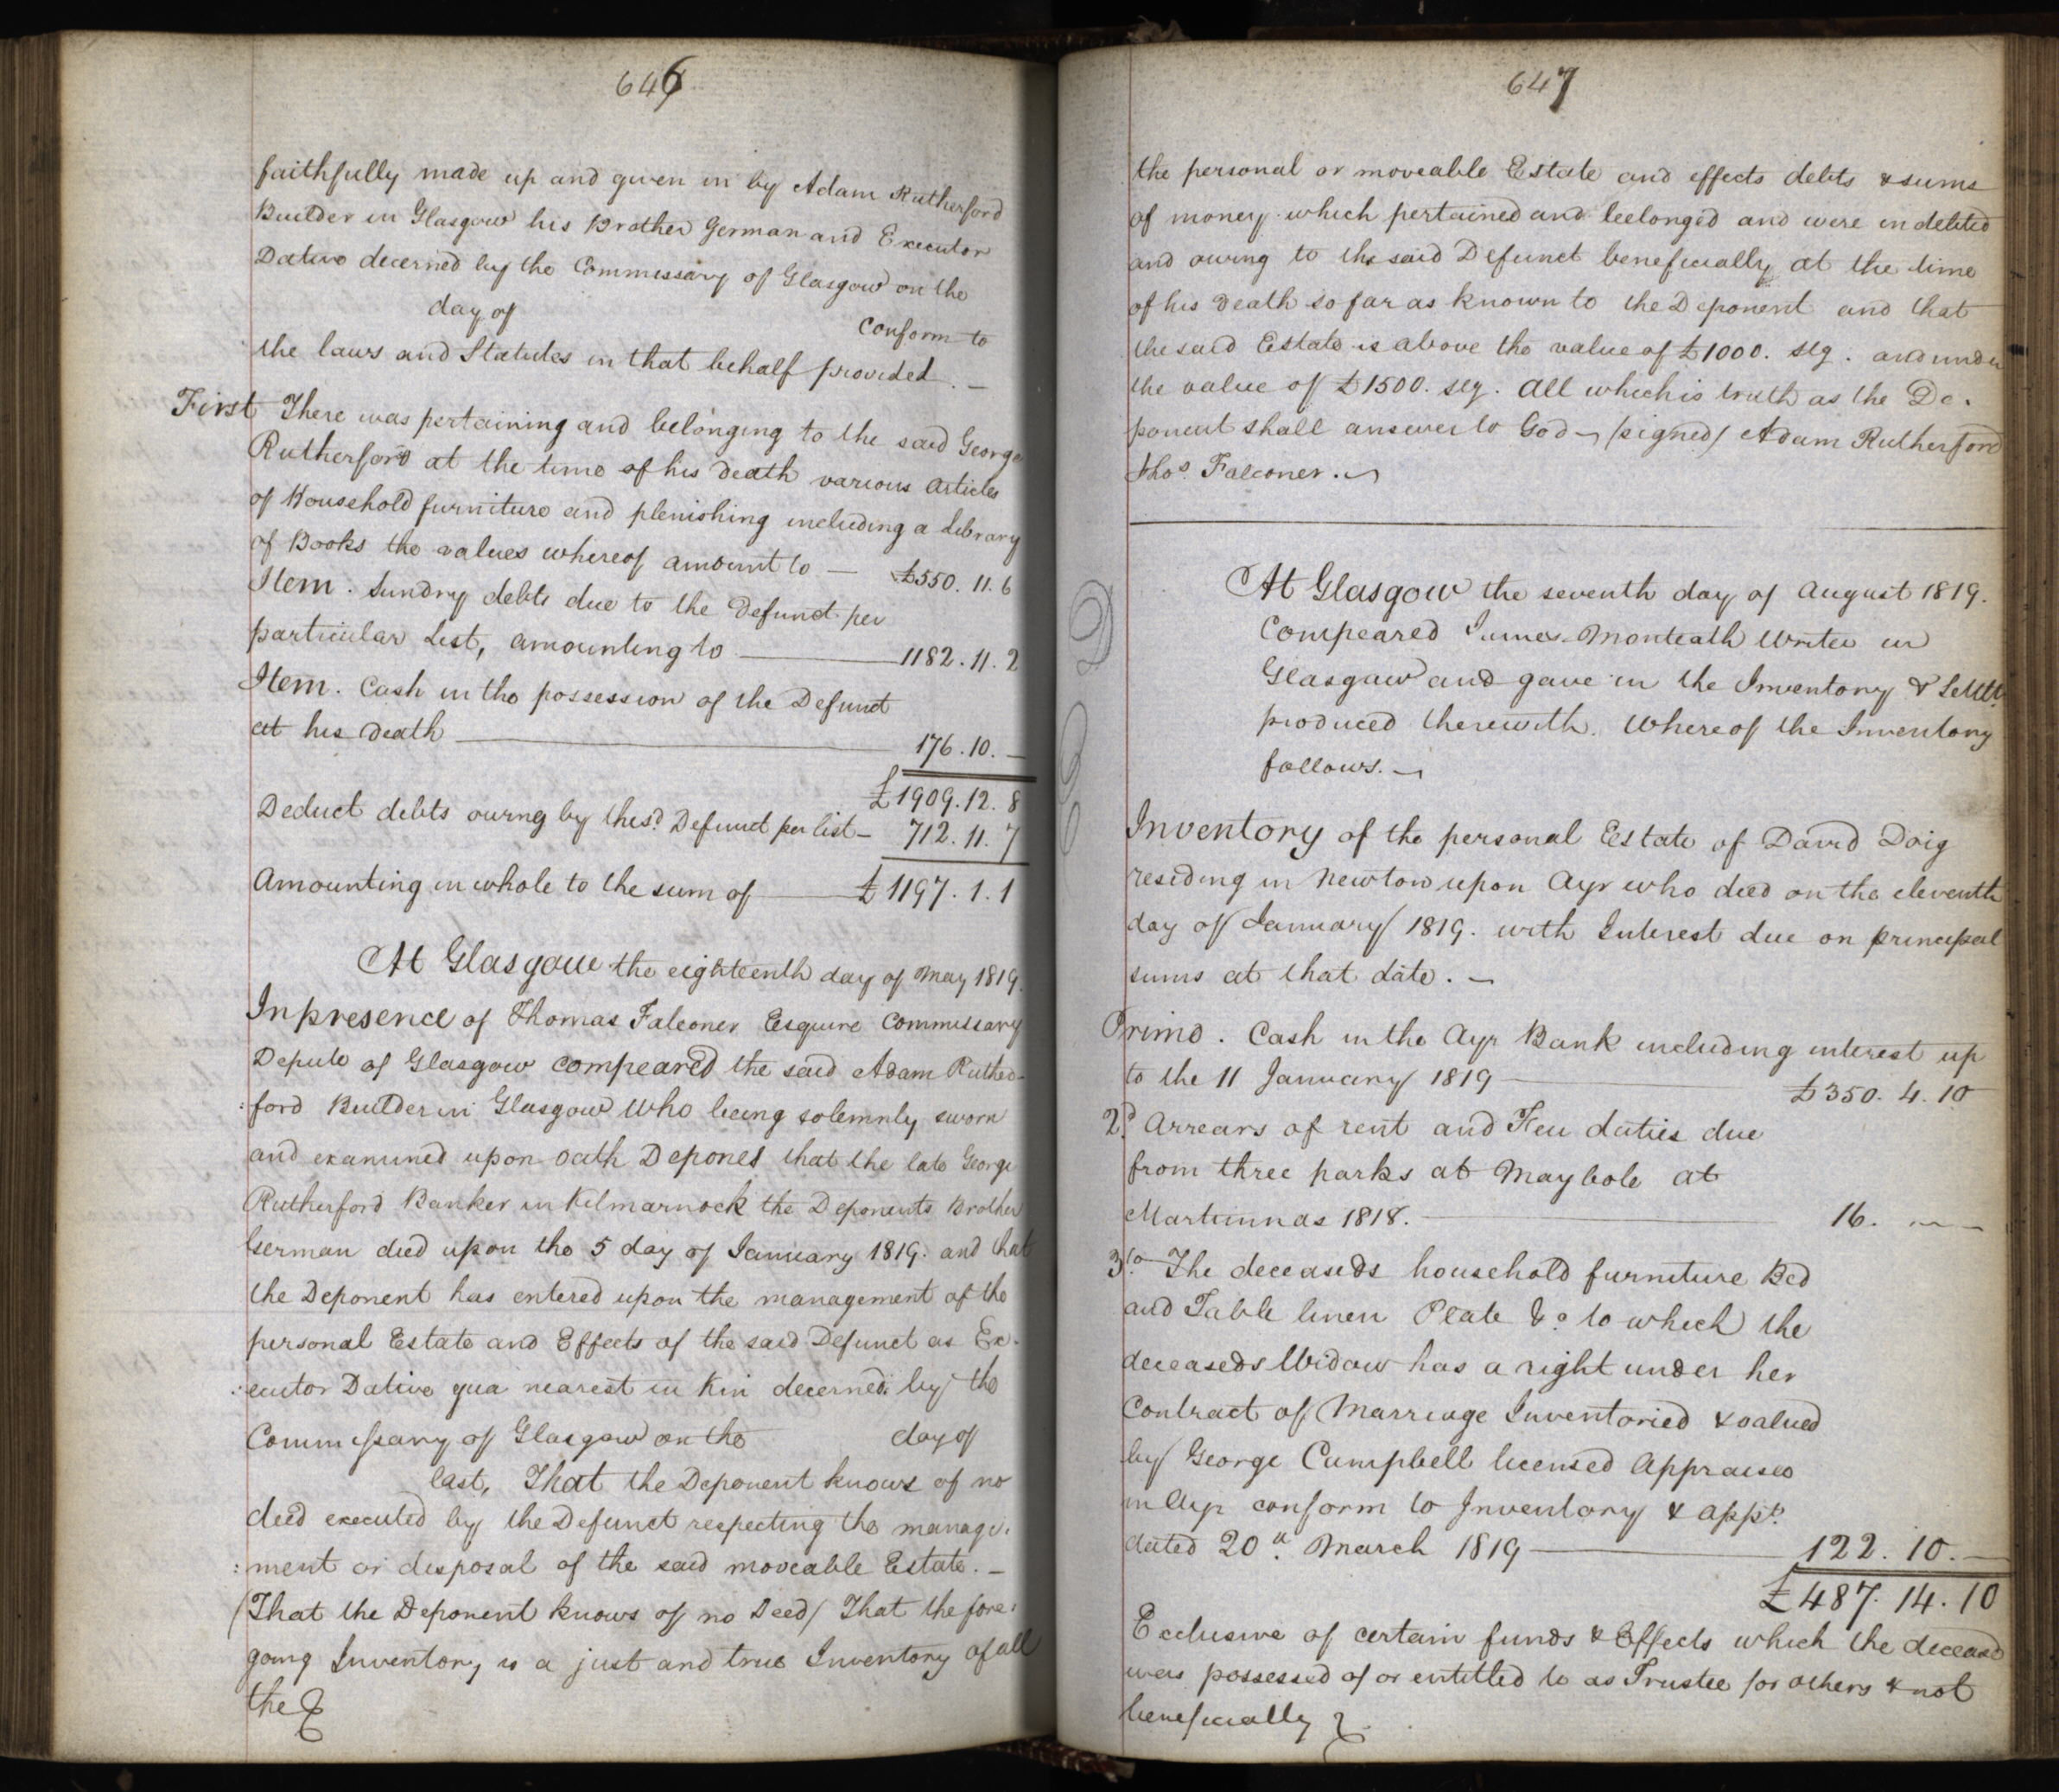 646
faithfully made up and given in by Adam Rutherford
Builder in Glasgow his Brother German and Executor
Dative decerned by the Commissary of Glasgow on the
day of
conform to
the laws and Statutes in that behalf provided. —
First There was pertaining and belonging to the said George
Rutherford at the time of his death various articles
of Household furniture and plenishing including a Library
of Books the values whereof amount to — £550. 11. 6
Item. Sundry debts due to the Defunct per
particular List, amounting to — 1182. 11. 2
Item. Cash in the possession of the Defunct
at his death — 176. 10. —
£1909. 12. 8
Deduct debts owing by the sd. Defunct per list — 712. 11. 7
Amounting in whole to the sum of — £1197. 1. 1
At Glasgow the eighteenth day of May 1819.
In presence of Thomas Falconer Esquire Commissary
Depute of Glasgow compeared the said Adam Ruther-
:ford Builder in Glasgow Who being solemnly sworn
and examined upon oath Depones that the late George
Rutherford Banker in Kilmarnock the Deponents Brother
German died upon the 5 day of January 1819. and that
the Deponent has entered upon the management of the
personal Estate and Effects of the said Defunct as Ex-
:ecutor Dative qua nearest in Kin decerned by the
Commissary of Glasgow on the day of
last, That the Deponent knows of no
deed executed by the Defunct respecting the manage:
:ment or disposal of the said moveable Estate. —
(That the Deponent knows of no Deed) That the fore:
going Inventory is a just and true Inventory of all
the
647
the personal or moveable Estate and effects debts & sums
of money which pertained and belonged and were indebted
and owing to the said Defunct beneficially at the time
of his death so far as known to the Deponent and that
the said Estate is above the value of £1000. stg. and under
the value of £1500. stg. All which is truth as the De.
ponent shall answer to God — (signed) Adam Rutherford
Thos. Falconer. —
At Glasgow the seventh day of August 1819.
Compeared James Monteath Writer in
Glasgow and gave in the Inventory & Settlt.
produced therewith. Whereof the Inventory
follows. —
Inventory of the personal Estate of David Doig
residing in Newton upon Ayr who died on the eleventh
day of January 1819. with Interest due on principal
sums at that date. —
Primo. Cash in the Ayr Bank including interest up
to the 11 January 1819 — £350. 4. 10
2d. Arrears of rent and Feu duties due
from three parks at Maybole at
Martinmas 1818. — 16. — —
3to. The deceaseds household furniture Bed
and Table linen Plate &c. to which the
deceaseds Widow has a right under her
Contract of Marriage Inventoried & valued
by George Campbell licensed Appraiser
in Ayr conform to Inventory & appt.
dated 20th. March 1819 — 122. 10. —
£487. 14. 10
Exclusive of certain funds & Effects which the deceased
was possessed of or entitled to as Trustee for others & not
beneficially